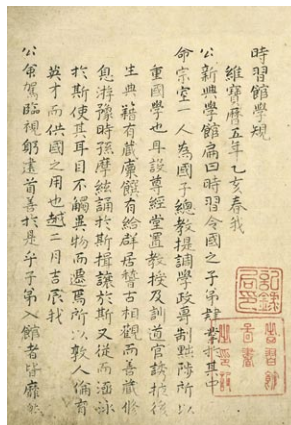 時習館學規
維寶曆五年乙亥春我
公新興學館扁曰時習令國之子弟肄學於其中
命宗室一人為國子總教提調學政專制黜陟所以
重國學也且設尊經堂置教授及訓道官談於後
生典籍有藏廩餼有給群居誓古相觀而善藏修
息游豫時孫摩絃誦於斯揖讓於斯又從而涵泳
於斯使其耳目不觸異物而遷焉所以敦人倫育
英才而供國之用也越二月吉辰我
公命駕臨視躬邁首善於是乎子弟入館者皆靡然